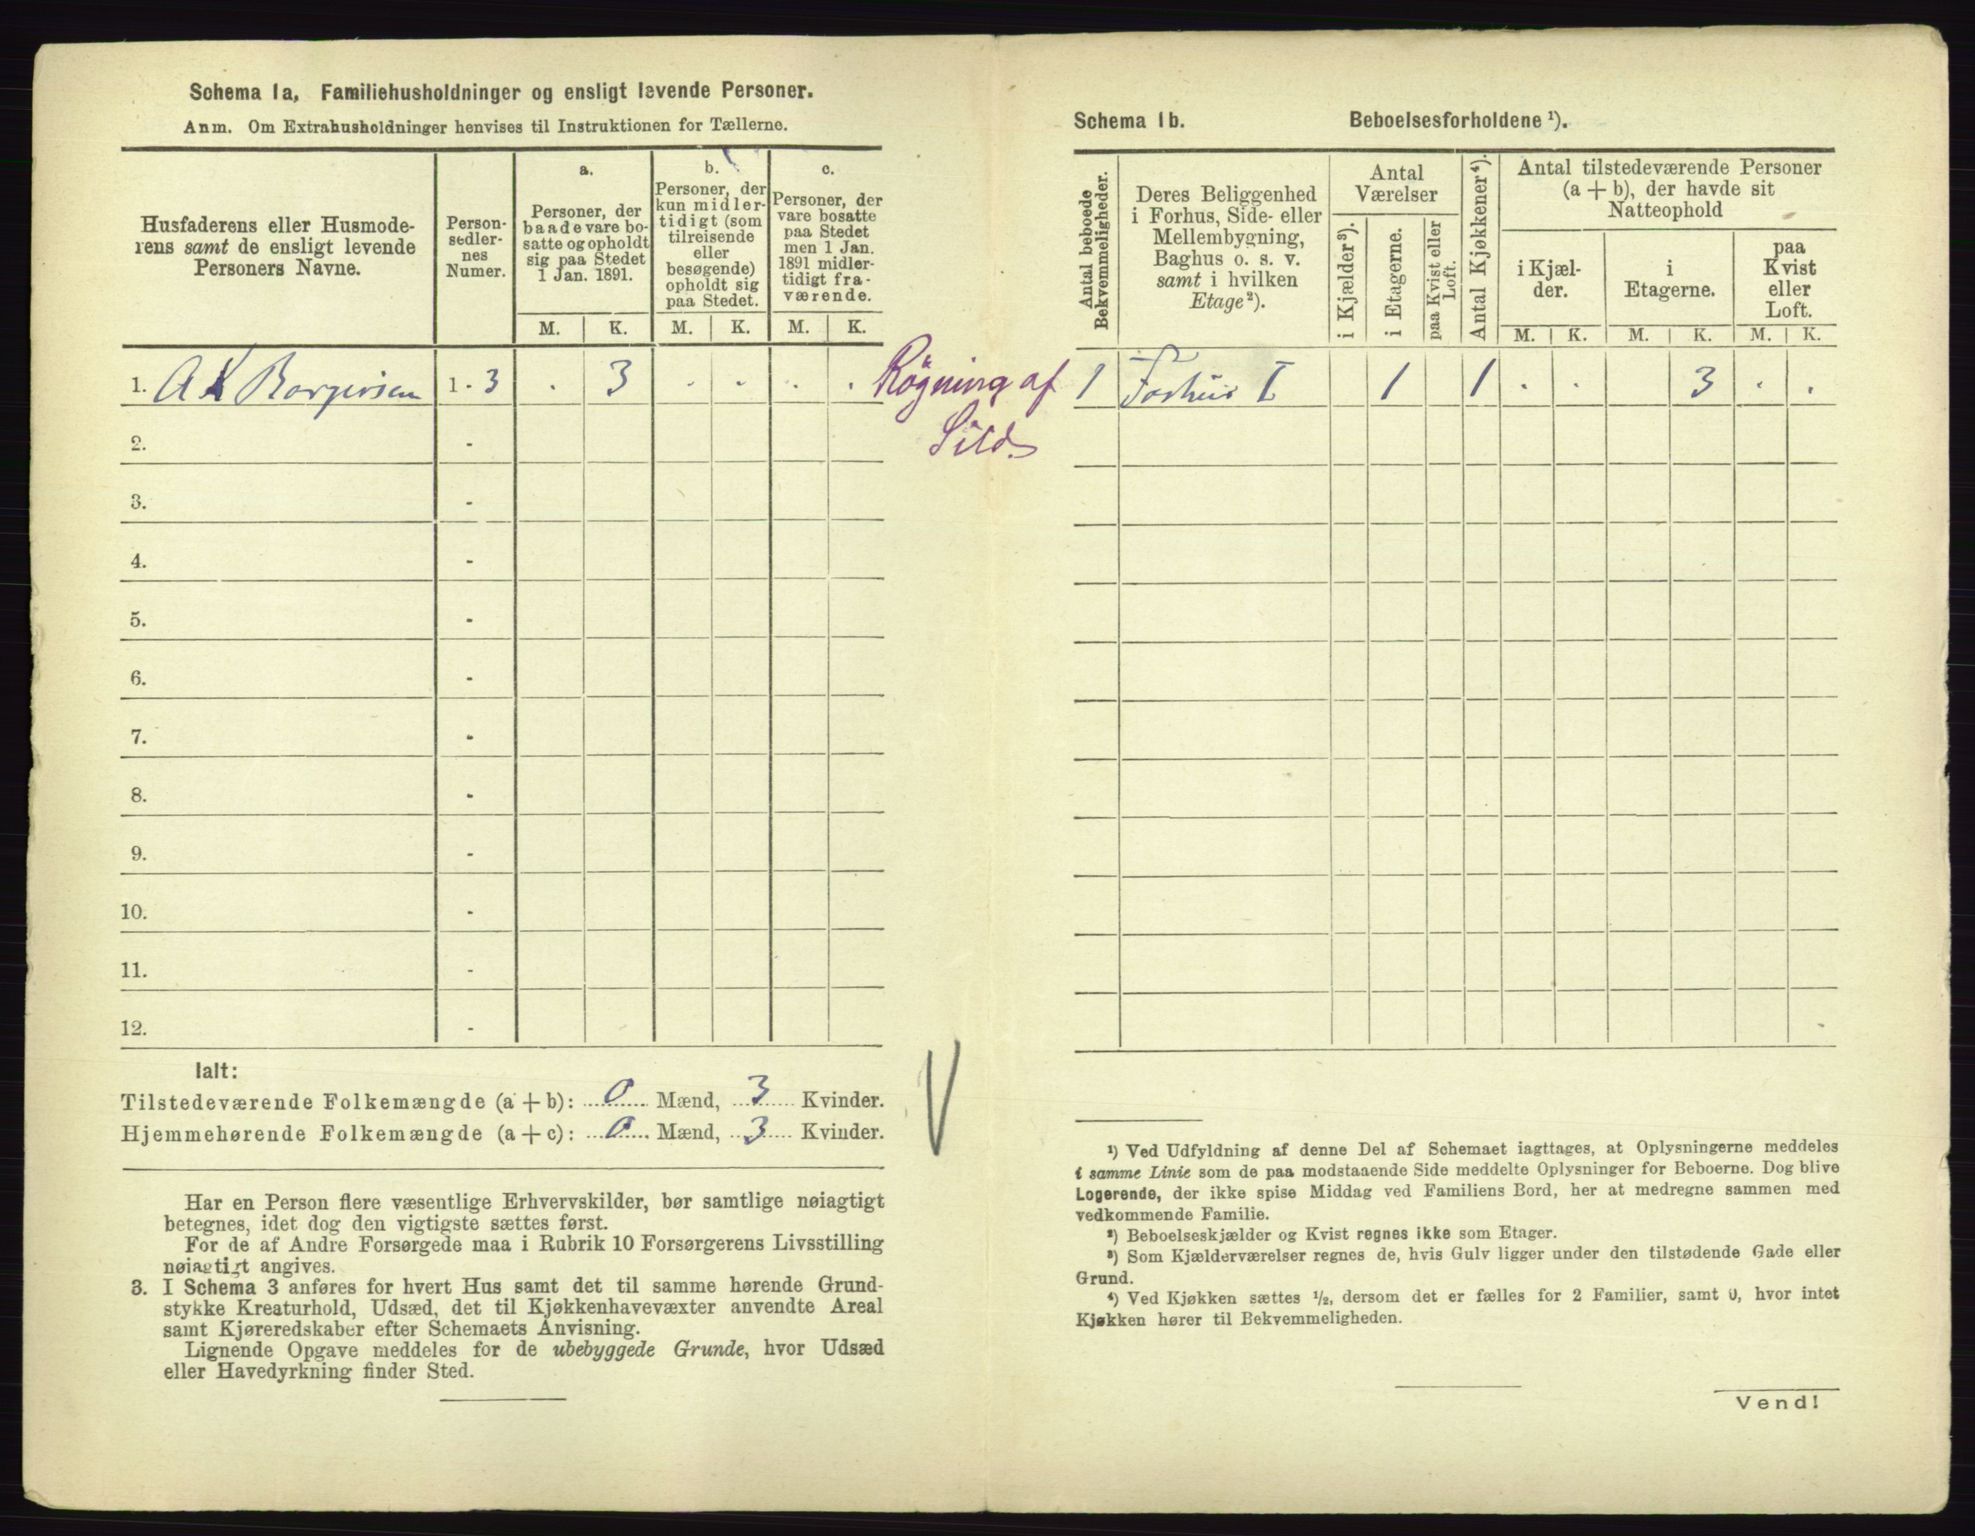 Schema 1a, Familiehusholdninger og ensligt levende Personer.
Anm. Om Extrahusholdninger henvises til Instruktionen for Tællerne.
Husfaderens eller Husmode-
rens samt de ensligt levende
Personers Navne.
Person-
sedler-
nes
Numer.
a.
Personer, der
baade vare bo-
satte og opholdt
sig paa Stedet
1 Jan. 1891.
b.
Personer, der
kun midler-
tidigt (som
tilreisende
eller
besøgende)
opholdt sig
paa Stedet.
c.
Personer, der
vare bosatte
paa Stedet
men 1 Jan.
1891 midler-
tidigt fra-
værende.
M. K. M. K. M. K.
1. A K Borgersen 1 - 3 . 3 . . . .
Røgning af
Sild.
2. -
3. -
4. -
5. -
6. -
7. -
8. -
9. -
10. -
11. -
12. -
Ialt:
Tilstedeværende Folkemængde (a + b): 0 Mænd, 3 Kvinder.
Hjemmehørende Folkemængde (a + c): 0 Mænd, 3 Kvinder.
Har en Person flere væsentlige Erhvervskilder, bør samtlige nøiagtigt
betegnes, idet dog den vigtigste sættes først.
For de af Andre Forsørgede maa i Rubrik 10 Forsørgerens Livsstilling
nøiagtigt angives.
3. I Schema 3 anføres for hvert Hus samt det til samme hørende Grund-
stykke Kreaturhold, Udsæd, det til Kjøkkenhavevæxter anvendte Areal
samt Kjøreredskaber efter Schemaets Anvisning.
Lignende Opgave meddeles for de ubebyggede Grunde, hvor Udsæd
eller Havedyrkning finder Sted.
Schema 1b. Beboelsesforholdene ¹).
Antal beboede
Bekvemmeligheder.
Deres Beliggenhed
i Forhus, Side- eller
Mellembygning,
Baghus o. s. v.
samt i hvilken
Etage ²).
Antal
Værelser
i Kjælder ³).
i Etagerne.
paa Kvist eller
Loft.
Antal Kjøkkener ⁴).
Antal tilstedeværende Personer
(a + b), der havde sit
Natteophold
i Kjæl-
der.
i
Etagerne.
paa
Kvist
eller
Loft.
M. K. M. K. M. K.
1 Forhus I 1 1 . . 3 . .
¹) Ved Udfyldning af denne Del af Schemaet iagttages, at Oplysningerne meddeles
i samme Linie som de paa modstaaende Side meddelte Oplysninger for Beboerne. Dog blive
Logerende, der ikke spise Middag ved Familiens Bord, her at medregne sammen med
vedkommende Familie.
²) Beboelseskjælder og Kvist regnes ikke som Etager.
³) Som Kjælderværelser regnes de, hvis Gulv ligger under den tilstødende Gade eller
Grund.
⁴) Ved Kjøkken sættes ½, dersom det er fælles for 2 Familier, samt 0, hvor intet
Kjøkken hører til Bekvemmeligheden.
Vend!